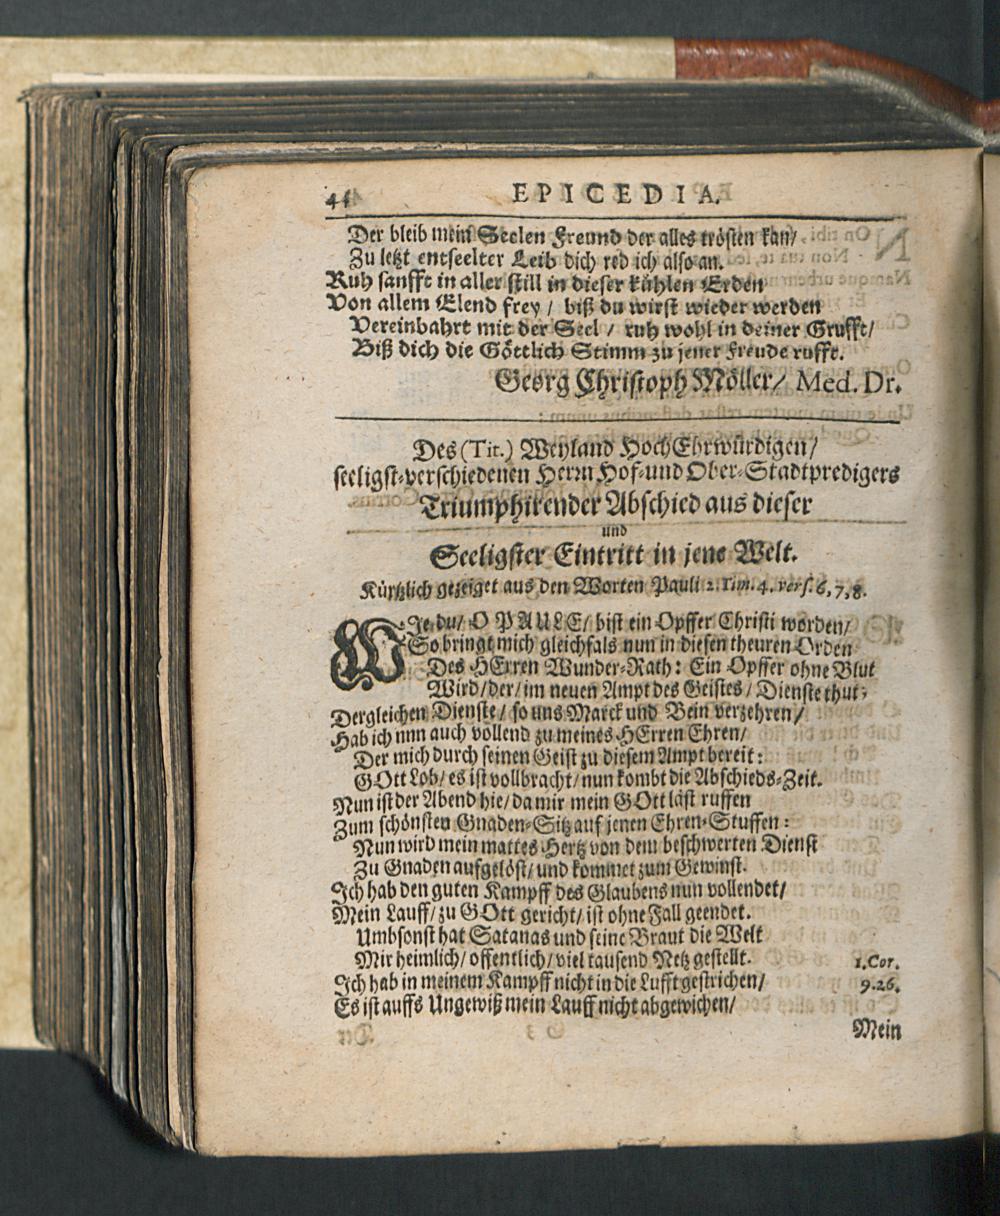 EPICEDIA.
Der bleib mein Seelen Freund der alles trösten kan/
Zu letzt entseelter Leib dich red ich also an.
Ruh sanfft in aller still in dieser kühlen Erden
Von allem Elend frey / biß du wirst wieder werden
Vereinbahrt mit der Seel / ruh wohl in deiner Grufft/
Biß dich die Göttlich Stimm zu jener Freude rufft.
Georg Christoph Möller/ Med. Dr.
Des (Tit.) Weyland HochEhrwürdigen/
seeligst-verschiedenen Herrn Hof-und Ober-Stadtpredigers
Triumphirender Abschied aus dieser
und
Seeligster Eintritt in jene Welt.
Kürtzlich gezeiget aus den Worten Pauli 2. Tim. 4. vers. 6, 7, 8.
WIe du/ O PAULE/ bist ein Opffer Christi worden/
So bringt mich gleichfals nun in diesen theuren Orden
Des HErren Wunder-Rath: Ein Opffer ohne Blut
Wird/der/im neuen Ampt des Geistes/ Dienste thut;
Dergleichen Dienste/ so uns Marck und Bein verzehren/
Hab ich nun auch vollend zu meines HErren Ehren/
Der mich durch seinen Geist zu diesem Ampt bereit:
GOtt Lob/ es ist vollbracht/ nun kombt die Abschieds-Zeit.
Nun ist der Abend hie/ da mir mein GOtt läst ruffen
Zum schönsten Gnaden-Sitz auf jenen Ehren-Stuffen:
Nun wird mein mattes Hertz von dem beschwerten Dienst
Zu Gnaden aufgelöst/ und kommet zum Gewinst.
Ich hab den guten Kampff des Glaubens nun vollendet/
Mein Lauff/ zu GOtt gericht/ ist ohne Fall geendet.
Umbsonst hat Satanas und seine Braut die Welt
Mir heimlich/ offentlich/ viel tausend Netz gestellt.
1. Cor.
Ich hab in meinem Kampff nicht in die Lufft gestrichen/
9. 26.
Es ist auffs Ungewiß mein Lauff nicht abgewichen/
Mein